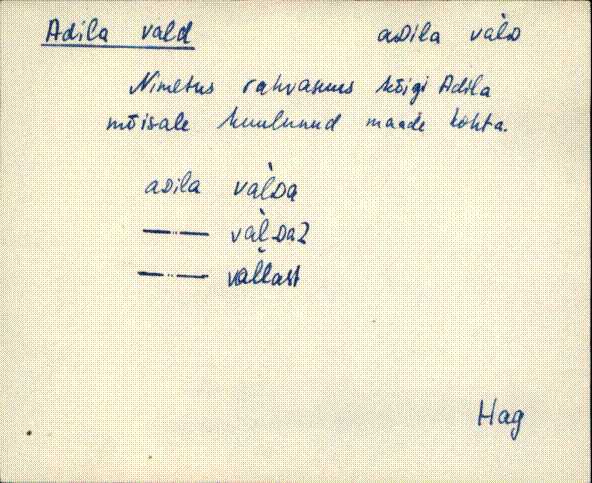 Adila vald aᴅila val̀ᴅ
Nimetus rahvasuus kõigi Adila
mõisale kuulunud maade kohta.
aᴅila val̀ᴅa
—··— val̀ᴅaᴢ
—··— val̀last
Hag